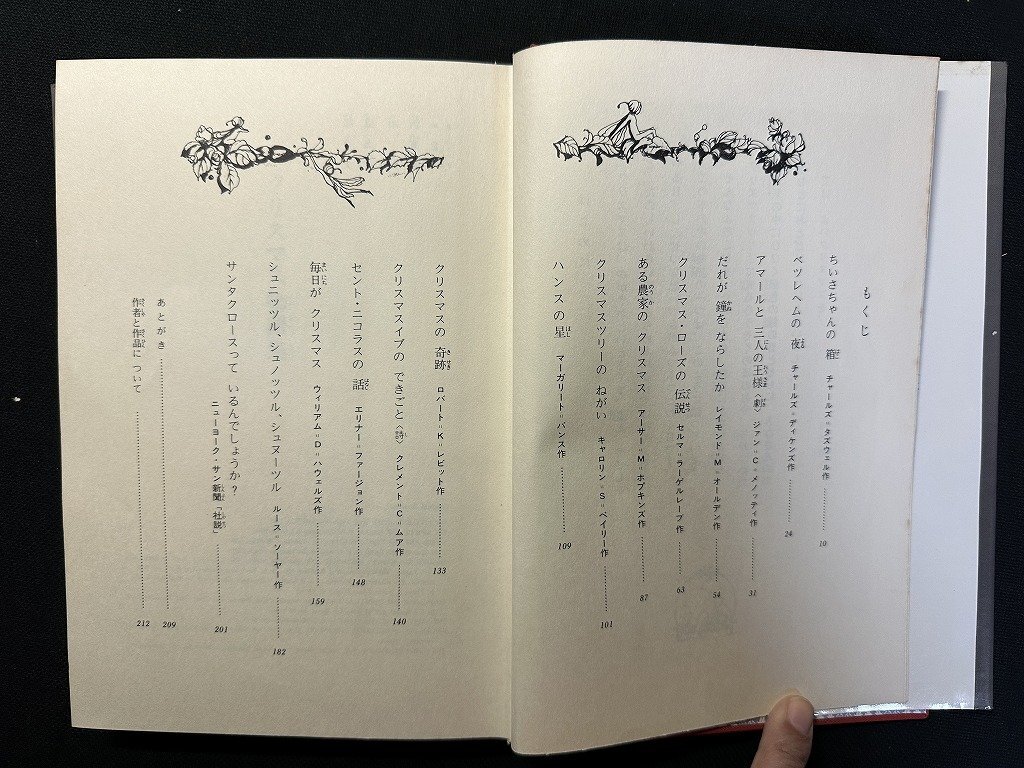 もくじ
ちいさちゃんの 箱 チャールズ=タズウェル作 ……… 10
ベツレヘムの 夜 チャールズ=ディケンズ作 ……… 24
アマールと 三人の王様〈劇〉 ジァン=C=メノッティ作 ……… 31
だれが 鐘を ならしたか レイモンド=M=オールデン作 ……… 54
クリスマス・ローズの 伝説 セルマ=ラーゲルレーブ作 ……… 63
ある農家の クリスマス アーサー=M=ホプキンズ作 ……… 87
クリスマスツリーの ねがい キャロリン=S=ベイリー作 ……… 101
ハンスの 星 マーガリート=バンス作 ……… 109
クリスマスの 奇跡 ロバート=K=レビット作 ……… 133
クリスマスイブの できごと〈詩〉 クレメント=C=ムア作 ……… 140
セント・ニコラスの 話 エリナー=ファージョン作 ……… 148
毎日が クリスマス ウィリアム=D=ハウェルズ作 ……… 159
シュニッツル、シュノッツル、シュヌーツル ルース=ソーヤー作 ……… 182
サンタクロースって いるんでしょうか?
ニューヨーク・サン新聞「社説」 ……… 201
あとがき ……… 209
作者と作品に ついて ……… 212